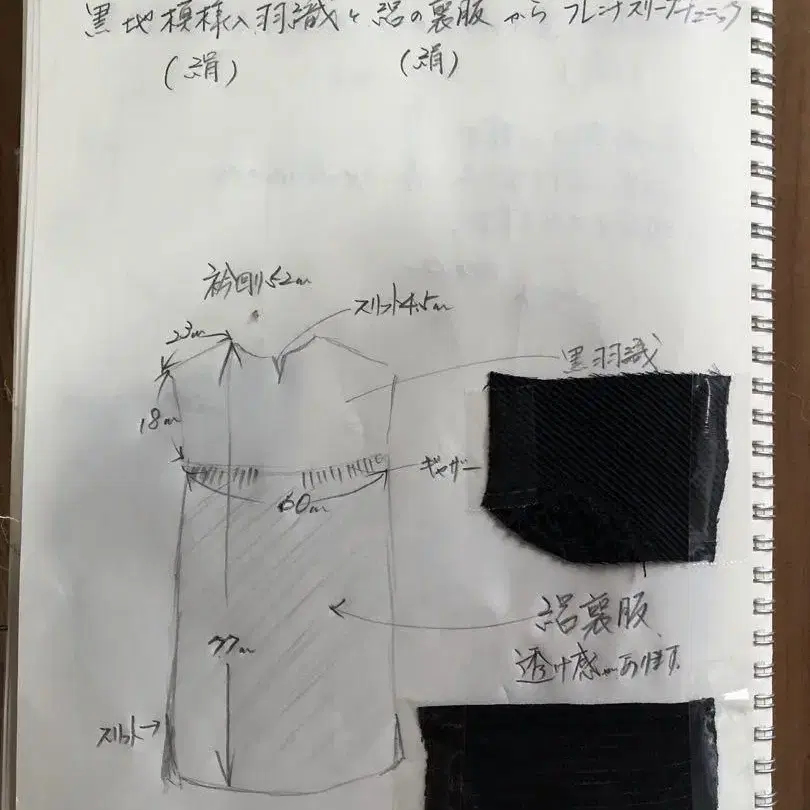 黒地模様入羽織と絽の裏服からフレンチスリーブチュニック
(絹) (絹)
衿回り52cm
スリット4.5cm
23cm
黒羽織
18cm
ギャザー
60cm
絽裏服
77cm
透け感があります
スリット